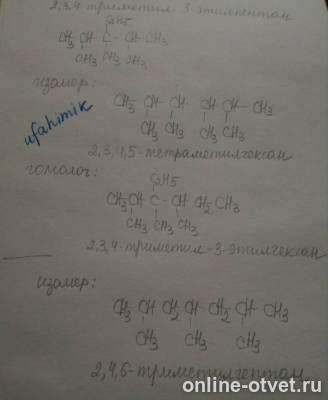 2,3,4 триметил-3-этилпентан
C2H5
CH3 CH - C - CH - CH3
CH3 CH3 CH3
изомер:
ufahimik
CH3 - CH - CH CH - CH - CH3
CH3 CH3 CH3 CH3
2,3,4,5-тетраметилгексан
гомолог:
C2H5
CH3 CH - C - CH CH2 CH3
CH3 CH3 CH3
2,3,4-триметил-3-этилгексан
изомер:
CH3 CH CH2 CH CH2 CH CH3
CH3 CH3 CH3
2,4,6-триметилгептан
online-otvet.ru